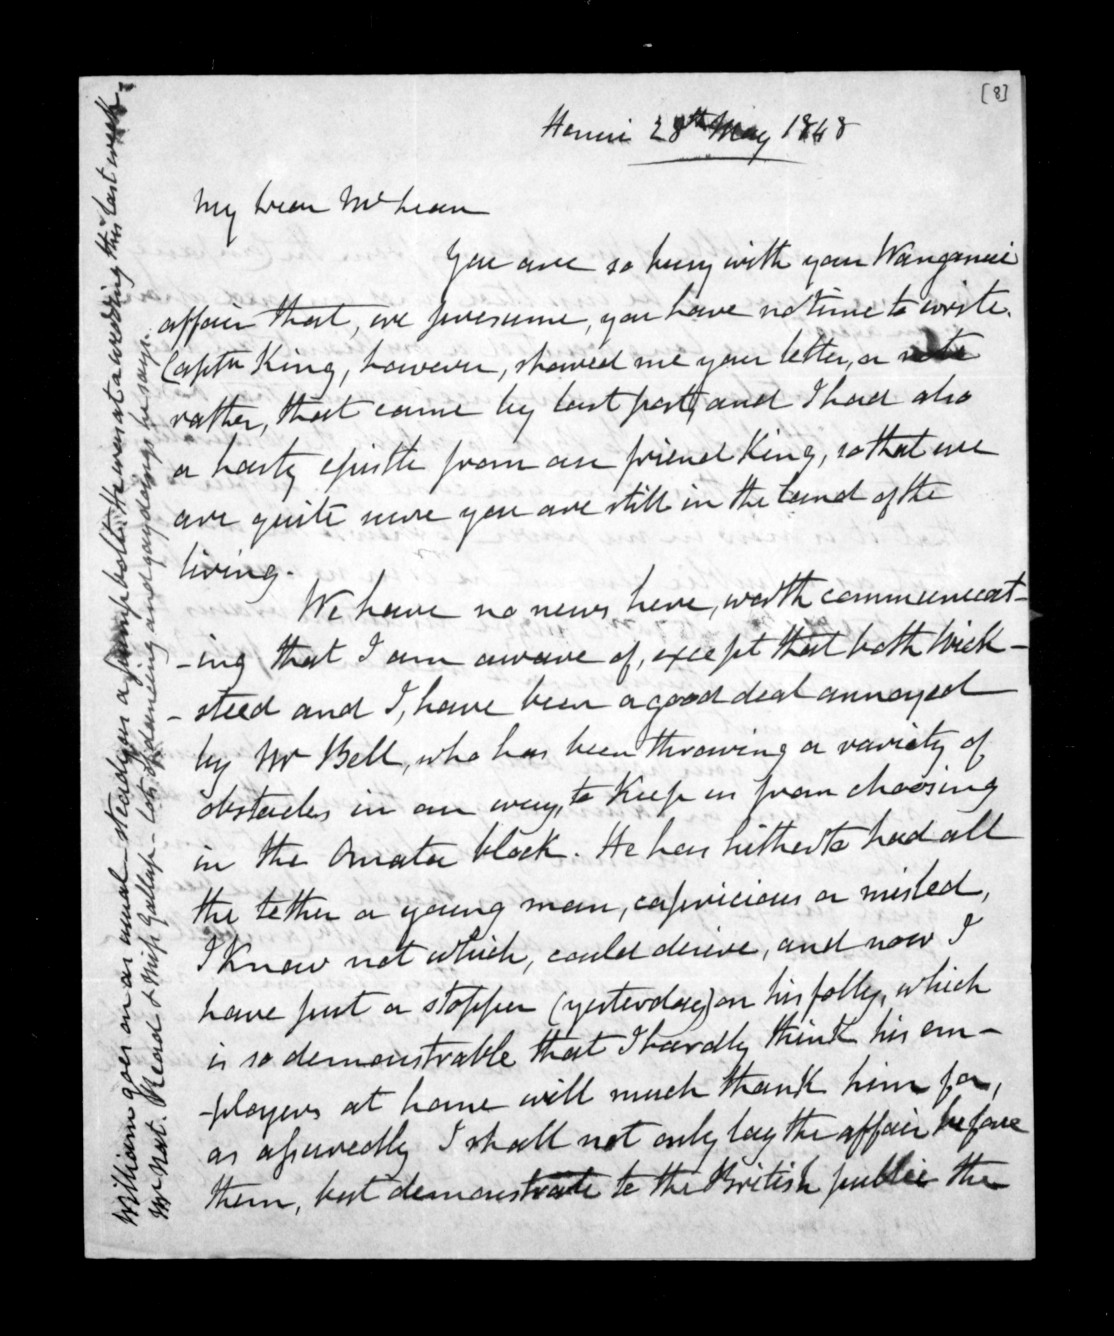 [8]
Henui 28th May 1848
My dear McLean
You are so busy with your Wanganui
affair that, we presume, you have no time to write.
Captn King, however, showed me your letter, or note
rather, that came by last post, and I had also
a hasty epistle from our friend King, so that we
are quite sure you are still in the land of the
living.
We have no news here, worth communicat-
-ing that I am aware of, except that both Wick-
-steed and I, have been a good deal annoyed
by Mr Bell, who has been throwing a variety of
obstacles in our way, to keep us from choosing
in the Omata block. He has hitherto had all
the tether a young man, capricious or misled,
I know not which, could desire, and now I
have put a stopper (yesterday) on his folly, which
is so demonstrable that I hardly think his em-
-ployers at home will much thank him for,
as assuredly I shall not only lay the affair before
them, but demonstrate to the British public the
William goes on as usual - steady as a pump bolt. He was at a wedding this last week
Mr Nat. &amp; Miss Gallop - Lots of dancing and gay doings he says.